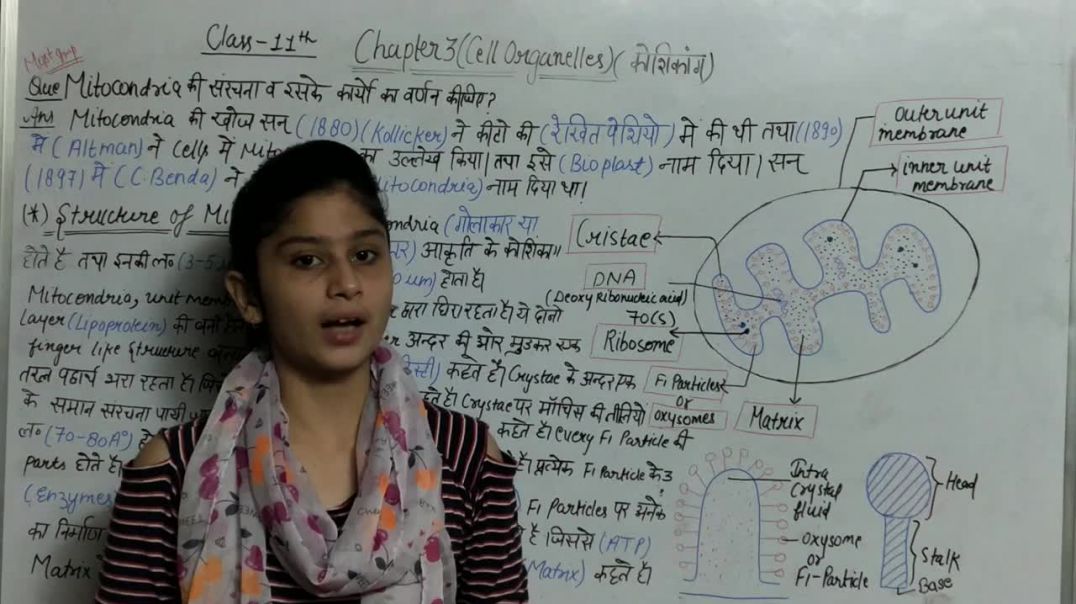 Class-11th
Chapter 3 (Cell Organelles) (कोशिकांग)
Que Mitocondria की संरचना व इसके कार्यों का वर्णन कीजिए?
Ans Mitocondria की खोज सन (1880) (Kollicker) ने कीटो की (रेखित पेशियो) में की थी तथा (1890)
में (Altman) ने Cells में का उल्लेख किया। तथा इसे (Bioplast) नाम दिया। सन
(1897) में (C. Benda) ने itocondria) नाम दिया था।
(*) Structure of Mi ndria (गोलाकार या
आकृति के कोशिका॥
होते है तथा इनकी ल० (3-5 um) होता है।
Mitocondria, unit mem द्वारा घिरा रहता है। ये दोनो
Layer (Lipoprotein) की बनी अन्दर की ओर मुडकर एक
finger like structure कहते है। Crystae के अन्दर एक
तरल पदार्थ भरा रहता है। कहते है। Crystae पर माचिस की तीलियो
के समान संरचना पायी कहते है। every F1 Particle की
ल० (70-80A°) है। प्रत्येक F1 Particle के 3
parts होते है। F1 Particles पर अनेक
(Enzymes है जिससे (ATP)
का निर्माण Matrix) कहते है।
Matrix
outer unit
membrane
inner unit
membrane
Cristae
DNA
(Deoxy Ribonucric acid)
70(S)
Ribosome
F1 Particles
or
oxysomes
Matrix
Intra
Crystal
fluid
oxysome
or
F1-Particle
Head
Stalk
Base